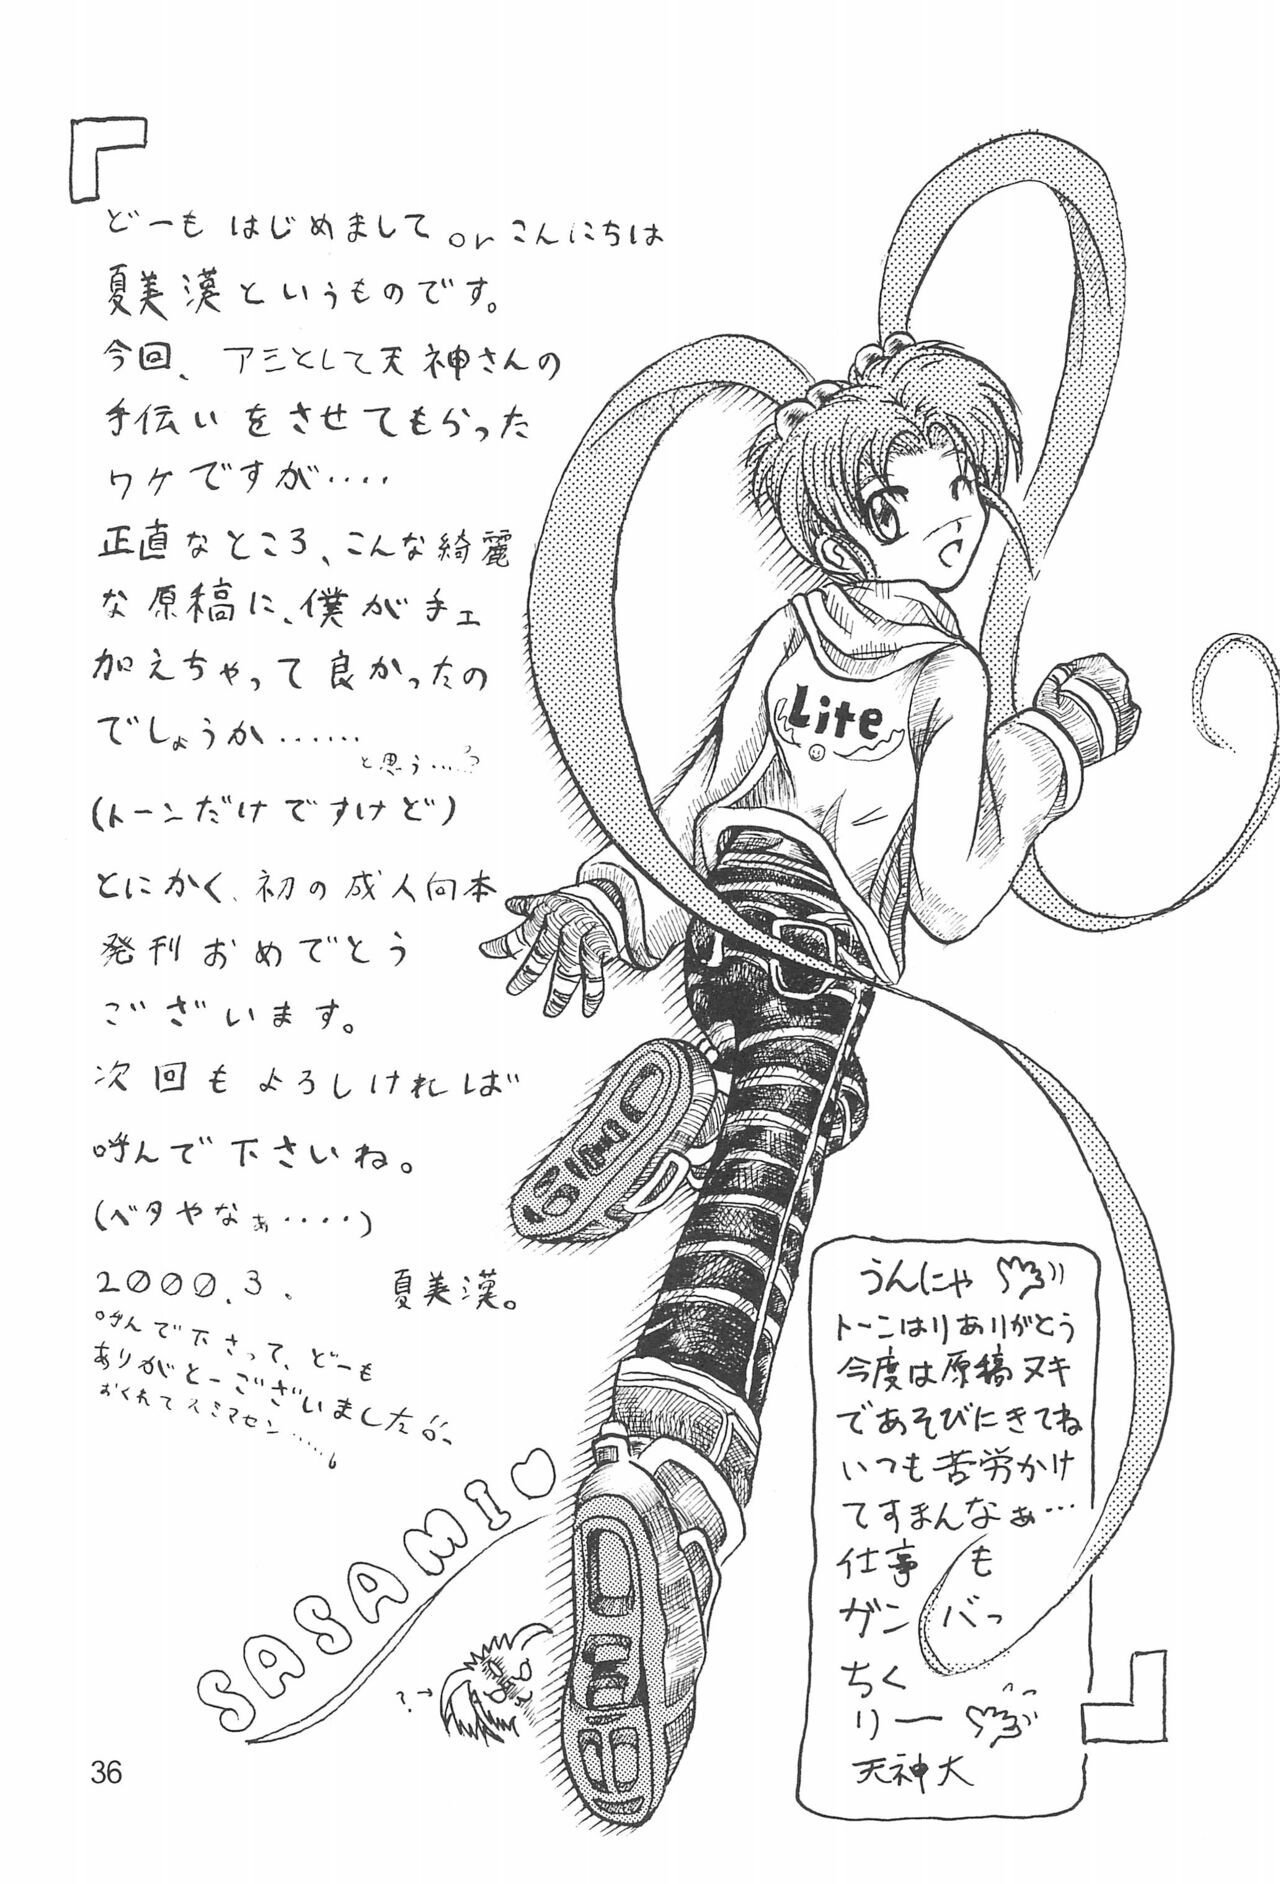 どーも はじめまして or こんにちは
夏美漠というものです。
今回、アシとして天神さんの
手伝いをさせてもらった
ワケですが‥‥
正直なところ、こんな綺麗
な原稿に、僕が手エ
加えちゃって良かったの
でしょうか‥‥‥
と思う…
(トーンだけですけど)
とにかく、初の成人向本
発刊おめでとう
ございます。
次回もよろしければ
呼んで下さいね。
(ベタやなぁ‥‥)
2000.3. 夏美漠。
呼んで下さって、どーも
ありがとーございました
おくれてスミマセン……
SASAMI♡
Lite
?→
うんにゃ
トーンはりありがとう
今度は原稿ヌキ
であそびにきてね
いつも苦労かけ
てすまんなぁ…
仕事も
ガンバっ
ちくりー
天神大
36